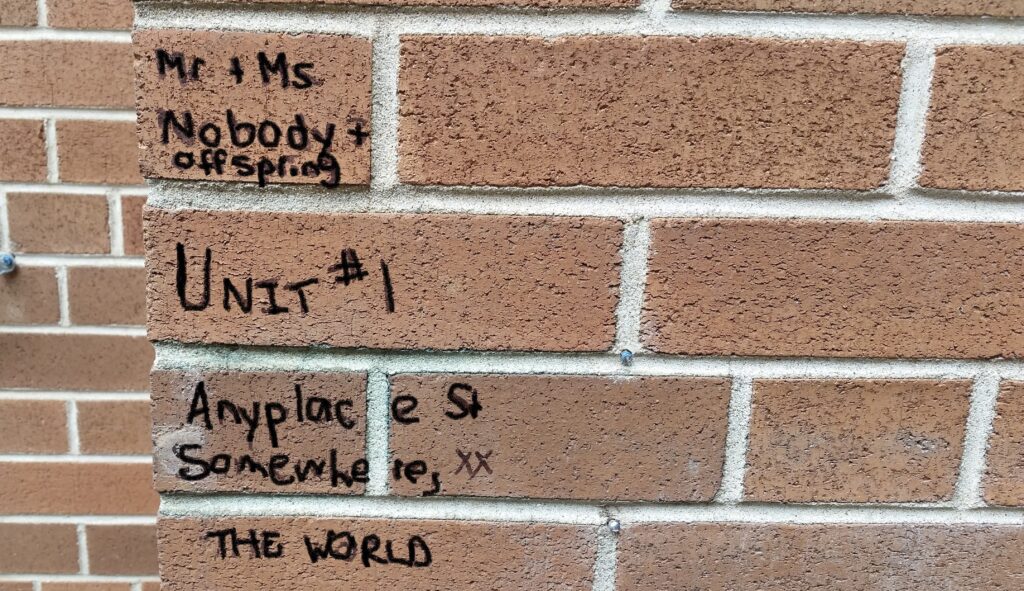 Mr + Ms
Nobody +
offspring
UNIT #1
Anyplace St
Somewhere, XX
THE WORLD